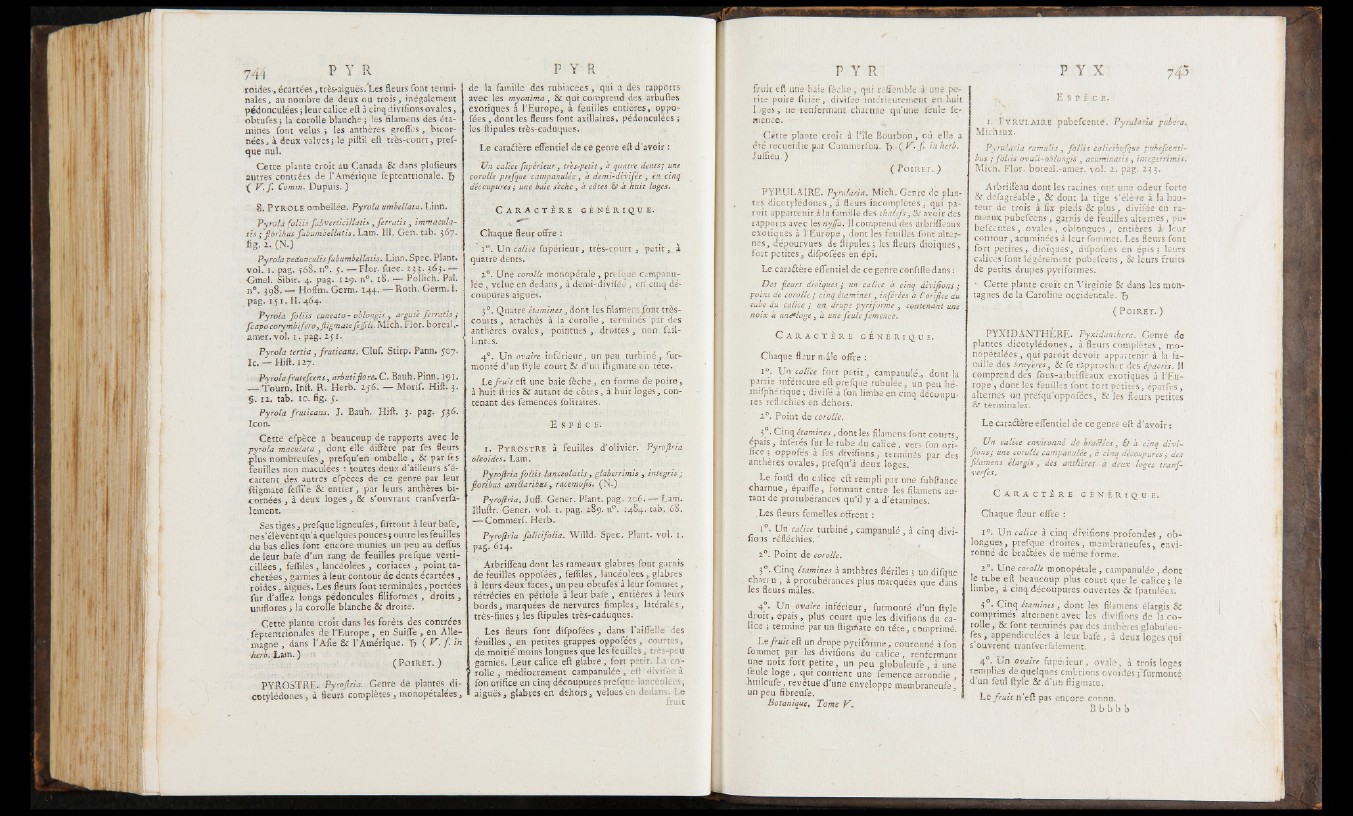 744 P Y R
roides, écartées, très-aiguës. Les fleurs sont termi-
nales, au nombre de deux ou trois, inégalement
pédonculées ; leur calice est à cinq divisions ovales,
obtuses ; la corolle blanche ; les filamens des éta-
mines sont velus ; les anthères grosses, bicor-
nées, à deux valves ; le pistil est très-court, pres-
que nul.
Cette plante croît au Canada & dans plusieurs
autres contrées de l'Amérique septentrionale. ♄
( V. s. Comm. Dupuis. )
8. PYROLE ombellée. Pyrola umbellata. Linn.
Pyrola foliis subverticillatis, serratis, immacula-
tis ; floribus subumbellatis. Lam. Ill. Gen. tab. 367.
fig. 2. (N.)
Pyrola pedunculis subumbellatis. Linn. Spec. Plant.
vol. 1. pag. 568. n°. 5. — Flor. suec. 223. 363. —
Gmel. Sibir. 4. pag. 129. n°. 18. — Pollich. Pal.
n°. 398. — Hoffm. Germ. 144. — Roth. Germ. I.
pag. 151. II. 464.
Pyrola foliis cuneato-oblongis, argutè serratis ;
scapo corymbifero, stigmate sessili. Mich. Flor. boreal.-
amer. vol. 1. pag. 251.
Pyrola tertia, fruticans. Clus. Stirp. Pann. 507.
Ic. — Hist. 127.
Pyrola frutescens, arbuti flore. C. Bauh. Pinn. 191.
— Tourn. Inst. R. Herb. 256. — Moris. Hist. 3.
§. 12. tab. 10. fig. 5.
Pyrola fruticans. J. Bauh. Hist. 3. pag. 536.
Icon.
Cette espèce a beaucoup de rapports avec le
pyrola maculata, dont elle diffère par ses fleurs
plus nombreuses, presqu'en ombelle, & par ses
feuilles non maculées : toutes deux d'ailleurs s'é-
cartent des autres espèces de ce genre par leur
stigmate sessile & entier, par leurs anthères bi-
cornées, à deux loges, & s'ouvrant transversa-
lement.
Ses tiges, presque ligneuses, surtout à leur base,
ne s'élèvent qu'à quelques pouces ; outre les feuilles
du bas elles sont encore munies un peu au dessus
de leur base d'un rang de feuilles presque verti-
cillées, sessiles, lancéolées, coriaces, point ta-
chetées, garnies à leur contour de dents écartées,
roides, aiguës. Les fleurs sont terminales, portées
sur d'assez longs pédoncules filiformes, droits,
uniflores ; la corolle blanche & droite.
Cette plante croît dans les forêts des contrées
septentrionales de l'Europe, en Suisse, en Alle-
magne, dans l'Asie & l'Amérique. ♄ ( V. s. in
herb. Lam. )
( POIRET. )
PYROSTRE. Pyrostria. Genre de plantes di-
cotylédones, à fleurs complètes, monopétalées,
P Y R
de la famille des rubiacées, qui a des rapports
avec les myonima, & qui comprend des arbustes
exotiques à l'Europe, à feuilles entières, oppo-
sées, dont les fleurs sont axillaires, pédonculées ;
les stipules très-caduques.
Le caractère essentiel de ce genre est d'avoir :
Un calice supérieur, très-petit, à quatre dents ; une
corolle presque campanulée, à demi-divisée, en cinq
découpures ; une baie sèche, à côtes & à huit loges.
CARACTÈRE GÉNÉRIQUE.
Chaque fleur offre :
1°. Un calice supérieur, très-court, petit, à
quatre dents.
2°. Une corolle monopétale, presque campanu-
lée, velue en dedans, à demi-divisée, en cinq dé-
coupures aiguës.
3°. Quatre étamines, dont les filamens sont très-
courts, attachés à la corolle, terminés par des
anthères ovales, pointues, droites, non sail-
lantes.
4°. Un ovaire inférieur, un peu turbiné, sur-
monté d'un style court & d'un stigmate en tête.
Le fruit est une baie sèche, en forme de poire,
à huit stries & autant de côtes, à huit loges, con-
tenant des semences solitaires.
ESPÈCE.
1. PYROSTRE à feuilles d'olivier. Pyrostria
oleoides. Lam.
Pyrostria foliis lanceolatis, glaberrimis, integris ;
floribus axillaribus, racemosis. (N.)
Pyrostria. Juss. Gener. Plant. pag. 206. — Lam.
Illustr. Gener. vol. 1. pag. 289. n°. 1484. tab. 68.
— Commers. Herb.
Pyrostria salicifolia. Willd. Spec. Plant. vol. 1.
pag. 614.
Arbrisseau dont les rameaux glabres sont garnis
de feuilles opposées, sessiles, lancéolées, glabres
à leurs deux faces, un peu obtuses à leur sommet,
rétrécies en pétiole à leur base, entières à leurs
bords, marquées de nervures simples, latérales,
très-fines ; les stipules très-caduques.
Les fleurs sont disposées, dans l'aisselle des
feuilles, en petites grappes opposées, courtes,
de moitié moins longues que les feuilles, très-peu
garnies. Leur calice est glabre, fort petit. La co-
rolle, médiocrement campanulée, est divisée à
son orifice en cinq découpures presque lancéolées,
aiguës, glabres en dehors, velues en dedans. Le
fruit
P Y R
fruit est une baie sèche, qui ressemble à une pe-
tite poire striée, divisée intérieurement en huit
loges, ne renfermant chacune qu'une seule se-
mence.
Cette plante croît à l'île Bourbon, où elle a
été recueillie par Commerson. ♄ ( V. s. in herb.
Jussieu. )
( POIRET. )
PYRULAIRE. Pyrularia. Mich. Genre de plan-
tes dicotylédones, à fleurs incomplètes, qui pa-
roît appartenir à la famille des chalefs, & avoir des
rapports avec les nyssa. Il comprend des arbrisseaux
exotiques à l'Europe, dont les feuilles sont alter-
nes, dépourvues de stipules ; les fleurs dioiques,
fort petites, disposées en épi.
Le caractère essentiel de ce genre consiste dans :
Des fleurs dioiques ; un calice à cinq divisions ;
point de corolle ; cinq étamines, insérées à l'orifice du
tube du calice ; un drupe pyriforme, contenant une
noix à une loge, à une seule semence.
CARACTÈRE GÉNÉRIQUE.
Chaque fleur mâle offre :
1°. Un calice fort petit, campanulé, dont la
partie inférieure est presque tubulée, un peu hé-
misphérique ; divisé à son limbe en cinq découpu-
res réfléchies en dehors.
2°. Point de corolle.
3°. Cinq étamines, dont les filamens sont courts,
épais, insérés sur le tube du calice, vers son ori-
fice ; opposés à ses divisions, terminés par des
anthères ovales, presqu'à deux loges.
Le fond du calice est rempli par une substance
charnue, épaisse, formant entre les filamens au-
tant de protubérances qu'il y a d'étamines.
Les fleurs femelles offrent :
1°. Un calice turbiné, campanulé, à cinq divi-
sions réfléchies.
2°. Point de corolle.
3°. Cinq étamines à anthères stériles ; un disque
charnu, à protubérances plus marquées que dans
les fleurs mâles.
4°. Un ovaire inférieur, surmonté d'un style
droit, épais, plus court que les divisions du ca-
lice ; terminé par un stigmate en tête, comprimé.
Le fruit est un drupe pyriforme, couronné à son
sommet par les divisions du calice, renfermant
une noix fort petite, un peu globuleuse, à une
seule loge, qui contient une semence arrondie,
huileuse, revêtue d'une enveloppe membraneuse,
un peu fibreuse.
Botanique. Tome V.
P Y X 745
ESPÈCE.
1. PYRULAIRE pubescente. Pyrularia pubera.
Michaux.
Pyrularia ramulis, foliis calicibusque pubescenti-
bus ; foliis ovali-oblongis, acuminatis, integerrimis.
Mich. Flor. boreal.-amer. vol. 2. pag. 233.
Arbrisseau dont les racines ont une odeur forte
& désagréable, & dont la tige s'élève à la hau-
teur de trois à six pieds & plus, divisée en ra-
meaux pubescens, garnis de feuilles alternes, pu-
bescentes, ovales, oblongues, entières à leur
contour, acuminées à leur sommet. Les fleurs sont
fort petites, dioiques, disposées en épis ; leurs
calices sont légérement pubescens, & leurs fruits
de petits drupes pyriformes.
Cette plante croît en Virginie & dans les mon-
tagnes de la Caroline occidentale. ♄
( POIRET. )
PYXIDANTHÈRE. Pyxidanthera. Genre de
plantes dicotylédones, à fleurs complètes, mo-
nopétalées, qui paroît devoir appartenir à la fa-
mille des bruyeres, & se rapprocher des épacris. Il
comprend des sous-arbrisseaux exotiques à l'Eu-
rope, dont les feuilles sont fort petites, éparses,
alternes ou presqu'opposées, & les fleurs petites
& terminales.
Le caractère essentiel de ce genre est d'avoir :
Un calice environné de bractées, & à cinq divi-
sions ; une corolle campanulée, à cinq découpures ; des
filamens élargis, des anthères à deux loges trans-
verses.
CARACTÈRE GÉNÉRIQUE.
Chaque fleur offre :
1°. Un calice à cinq divisions profondes, ob-
longues, presque droites, membraneuses, envi-
ronné de bractées de même forme.
2°. Une corolle monopétale, campanulée, dont
le tube est beaucoup plus court que le calice ; le
limbe, à cinq découpures ouvertes & spatulées.
3°. Cinq étamines, dont les filamens élargis &
comprimés alternent avec les divisions de la co-
rolle, & sont terminés par des anthères globuleu-
ses, appendiculées à leur base, à deux loges qui
s'ouvrent transversalement.
4°. Un ovaire supérieur, ovale, à trois loges
remplies de quelques embrions ovoides ; surmonté
d'un seul style & d'un stigmate.
Le fruit n'est pas encore connu.
B b b b b